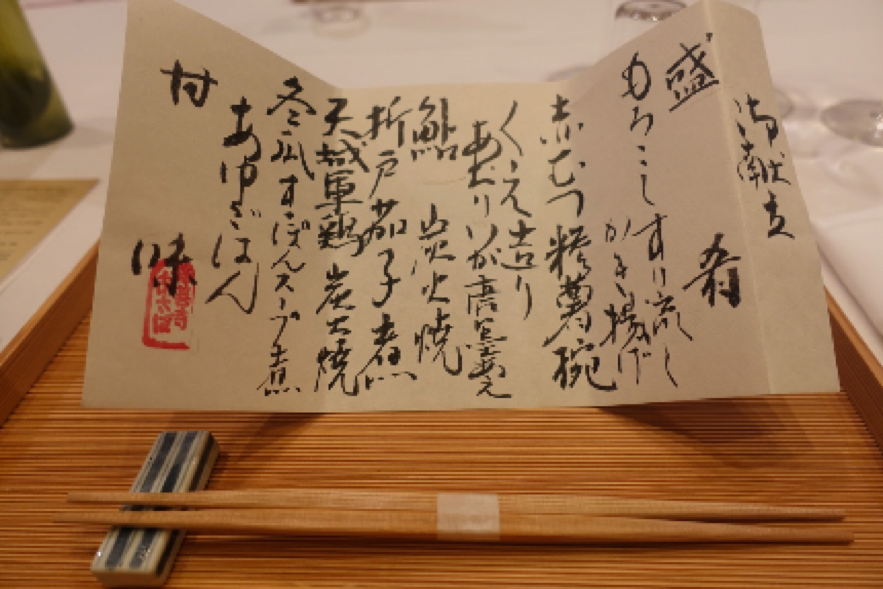 御献立
盛 肴
もろこし すり流し
かき揚げ
赤むつ 糝薯椀
くえ造り
あおりいか 唐墨あえ
鮎 炭火焼
折戸茄子 煮
天城軍鶏 炭火焼
冬瓜 すっぽんスープ煮
あゆごはん
甘 味